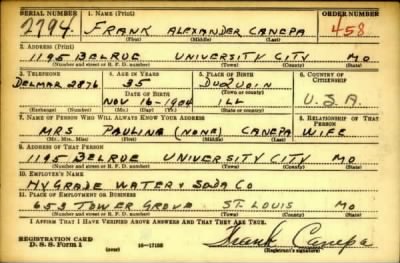 SERIAL NUMBER 1. NAME (Print) ORDER NUMBER
2794. FRANK ALEXANDER CANEPA 458
(First) (Middle) (Last)
2. ADDRESS (Print)
1195 BELRUE UNIVERSITY CITY MO
(Number and street or R. F. D. number) (Town) (County) (State)
3. TELEPHONE 4. AGE IN YEARS 5. PLACE OF BIRTH 6. COUNTRY OF CITIZENSHIP
DELMAR 2876 35 DUQUOIN
DATE OF BIRTH (Town or county)
NOV 16-1904 ILL U.S.A.
(Exchange) (Number) (Mo.) (Day) (Yr.) (State or country)
7. NAME OF PERSON WHO WILL ALWAYS KNOW YOUR ADDRESS 8. RELATIONSHIP OF THAT PERSON
MRS PAULINE (NONE) CANEPA WIFE
(Mr., Mrs., Miss) (First) (Middle) (Last)
9. ADDRESS OF THAT PERSON
1195 BELRUE UNIVERSITY CITY MO
(Number and street or R. F. D. number) (Town) (County) (State)
10. EMPLOYER'S NAME
HYGRADE WATER & SODA CO
11. PLACE OF EMPLOYMENT OR BUSINESS
653 TOWER GROVE ST. LOUIS MO
(Number and street or R. F. D. number) (Town) (County) (State)
I AFFIRM THAT I HAVE VERIFIED ABOVE ANSWERS AND THAT THEY ARE TRUE.
REGISTRATION CARD
D. S. S. Form 1 (over) 16-17105 Frank Canepa
(Registrant's signature)